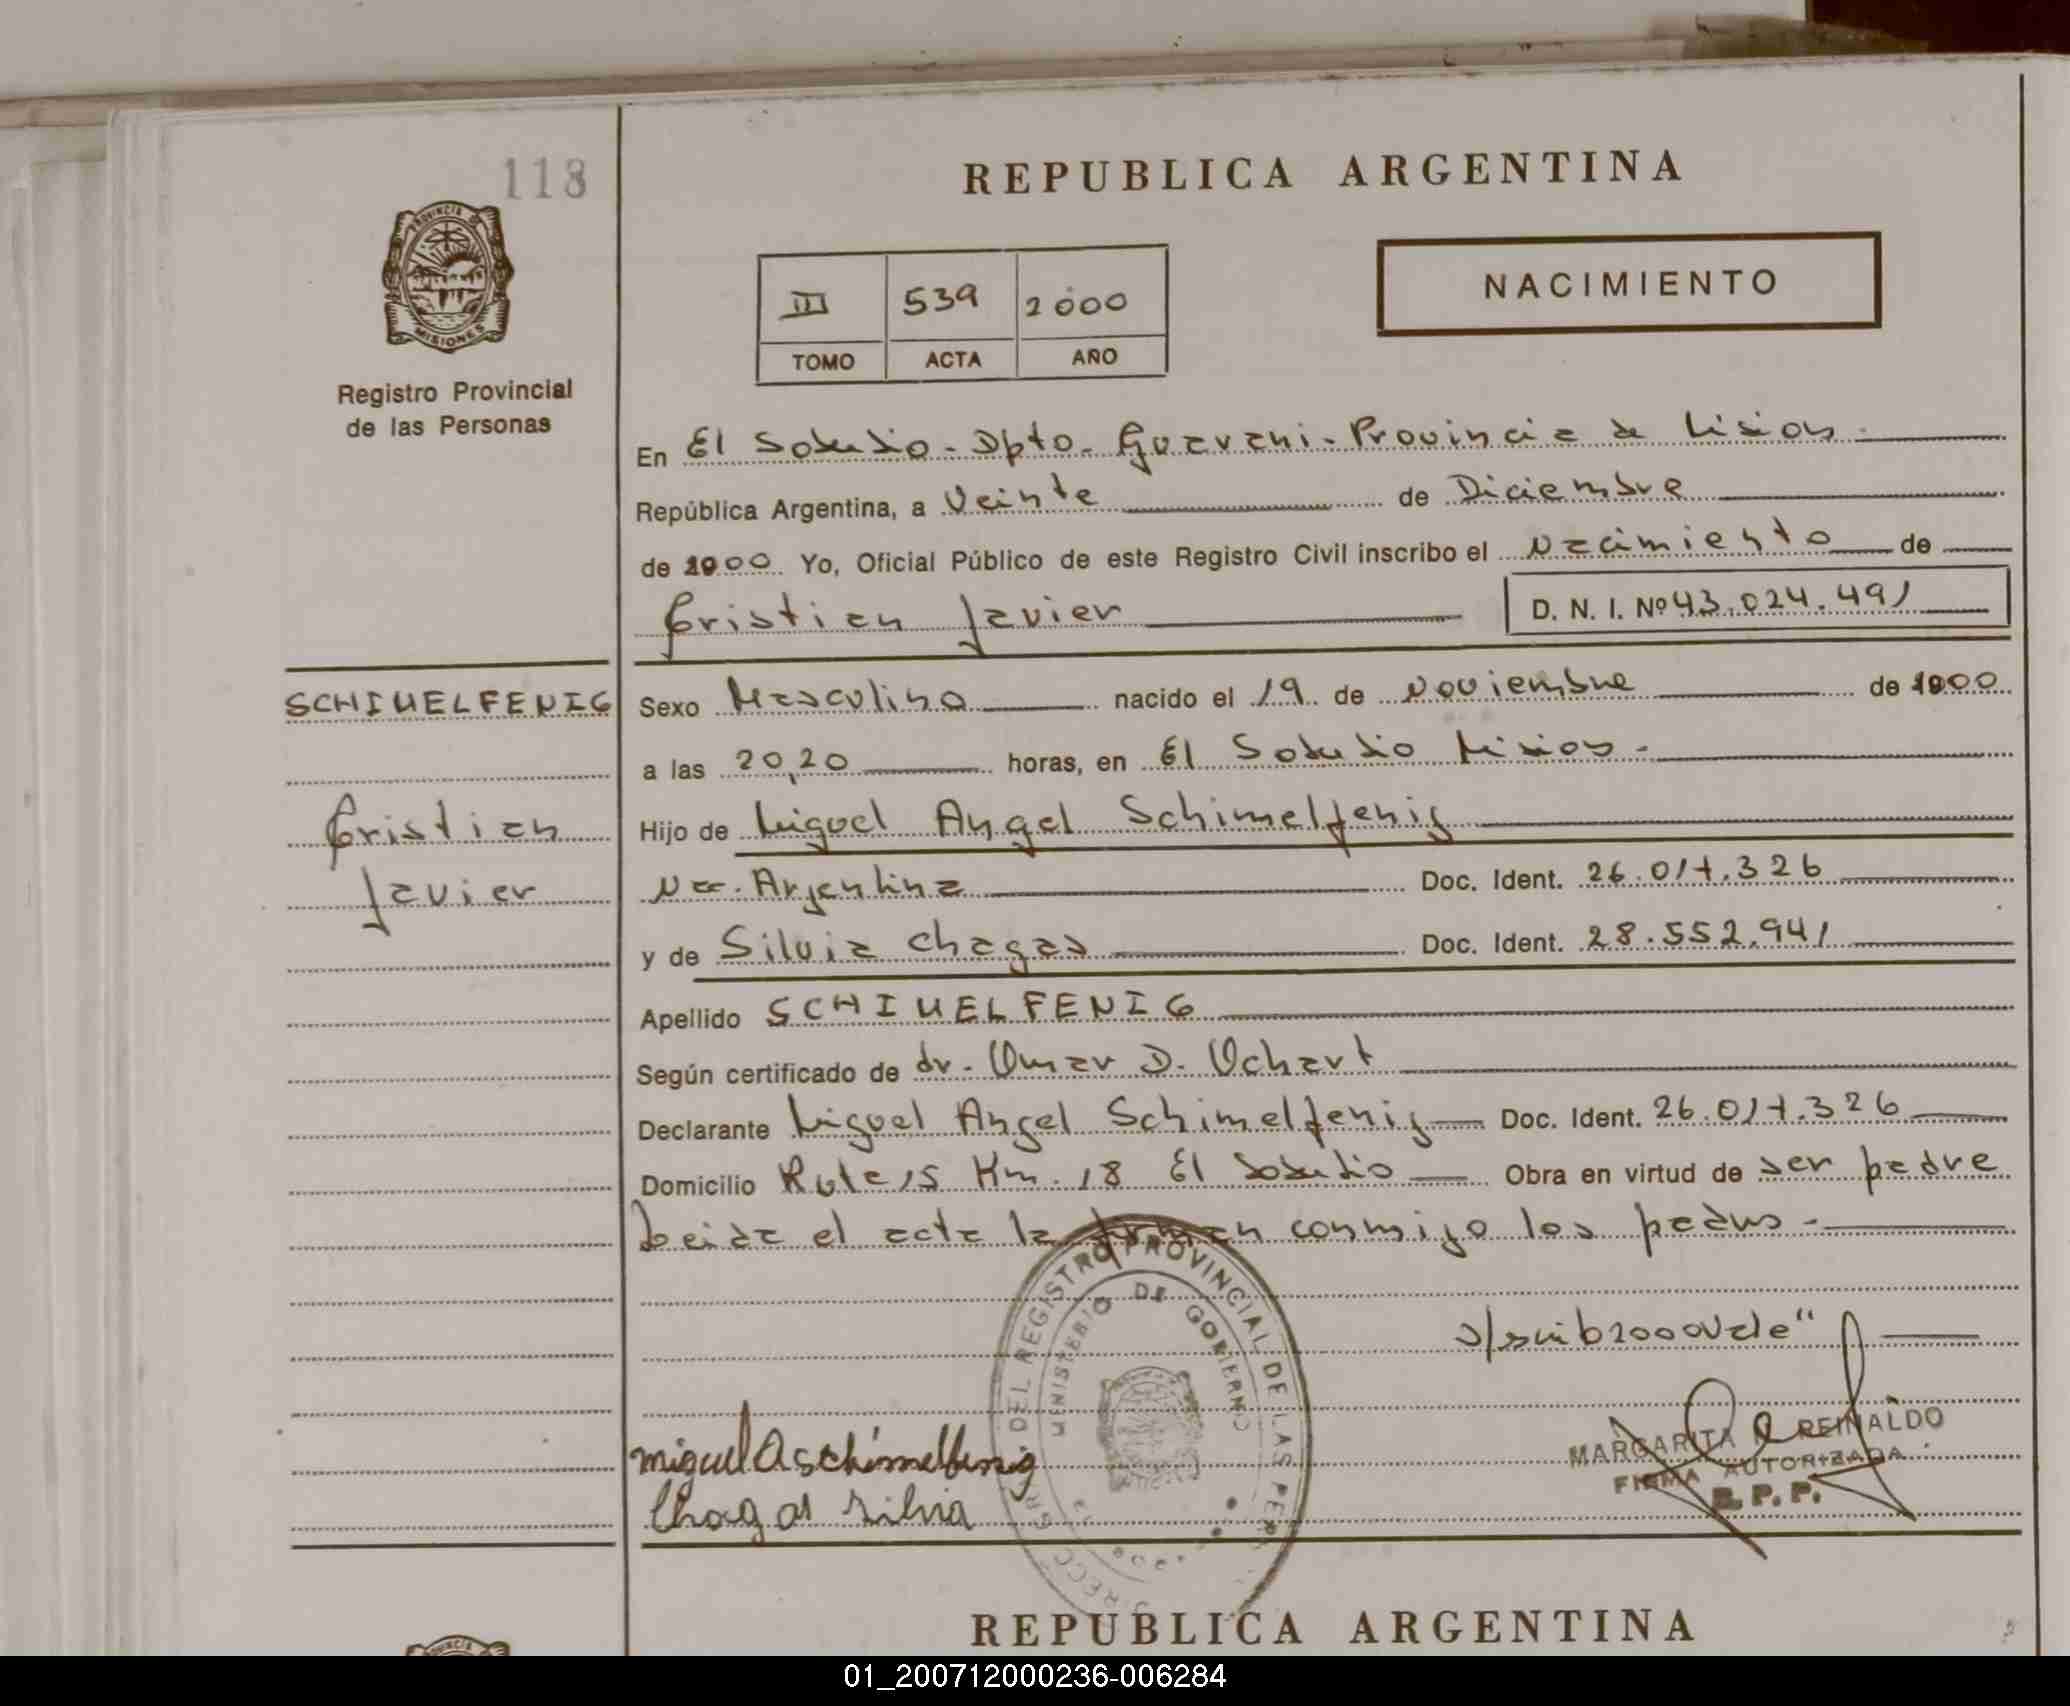 118
REPUBLICA ARGENTINA
PROVINCIA DE
MISIONES
NACIMIENTO
III 539 2000
TOMO ACTA AÑO
Registro Provincial
de las Personas
En El Soberbio - Dpto. Guarani - Provincia de Misiones
República Argentina, a Veinte de Diciembre
de 2000 Yo, Oficial Público de este Registro Civil inscribo el Nacimiento de
Cristian Javier D. N. I. Nº 43.024.491
SCHIMELFENIG
Cristian
Javier
Sexo Masculino nacido el 19 de Noviembre de 2000
a las 20,20 horas, en El Soberbio Misiones -
Hijo de Miguel Angel Schimelfenig
Nac. Argentina Doc. Ident. 26.017.326
y de Silvia Chagas Doc. Ident. 28.552.941
Apellido SCHIMELFENIG
Según certificado de dr. Omar D. Ochart
Declarante Miguel Angel Schimelfenig Doc. Ident. 26.017.326
Domicilio Ruta 15 Km. 18 El Soberbio Obra en virtud de ser padre
Leida el acta la firman conmigo los padres -
2000 Vale"
DEL REGISTRO PROVINCIAL DE LAS
MINISTERIO DE GOBIERNO
Miguel A Schimelfenig
Chagas Silvia
MARGARITA REINALDO
FIRMA AUTORIZADA
R.P.P.
REPUBLICA ARGENTINA
01_200712000236-006284